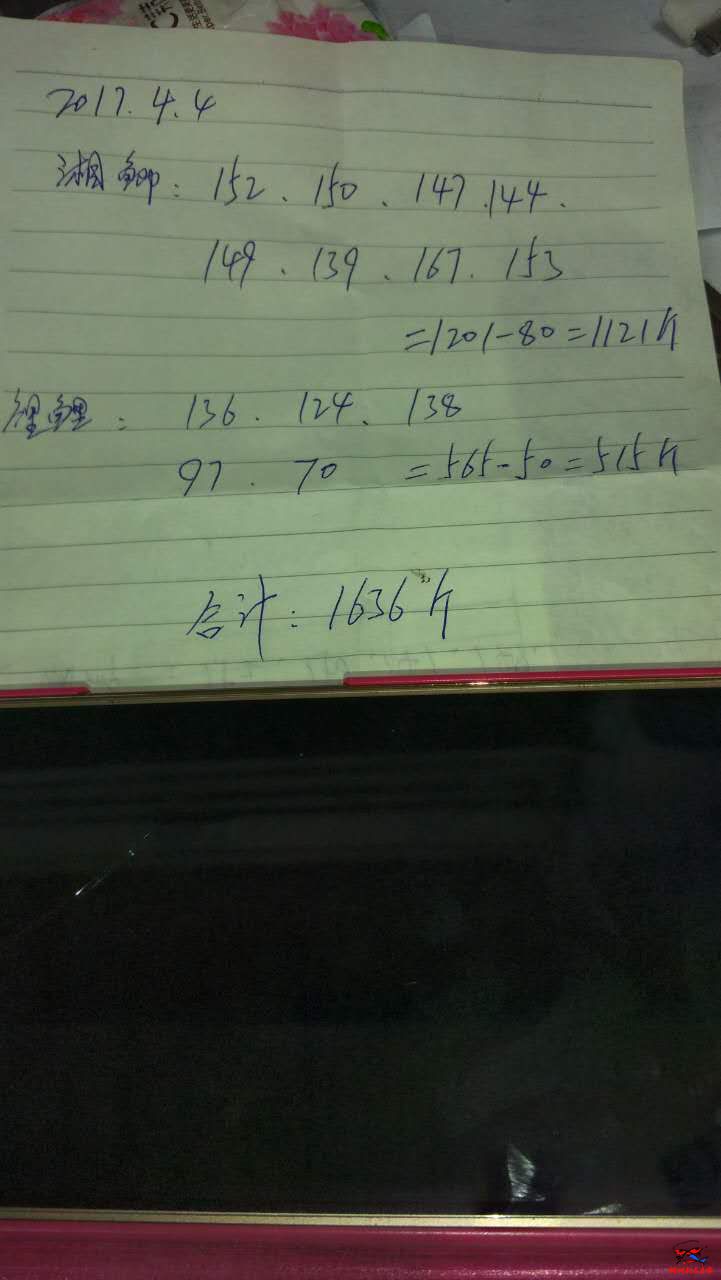 2017.4.4
湘鲫：152．150．147．144．
149．139．167．153
=1201-80=1121斤
鲤：136．124．138
97．70 =565-50=515斤
合计：1636斤